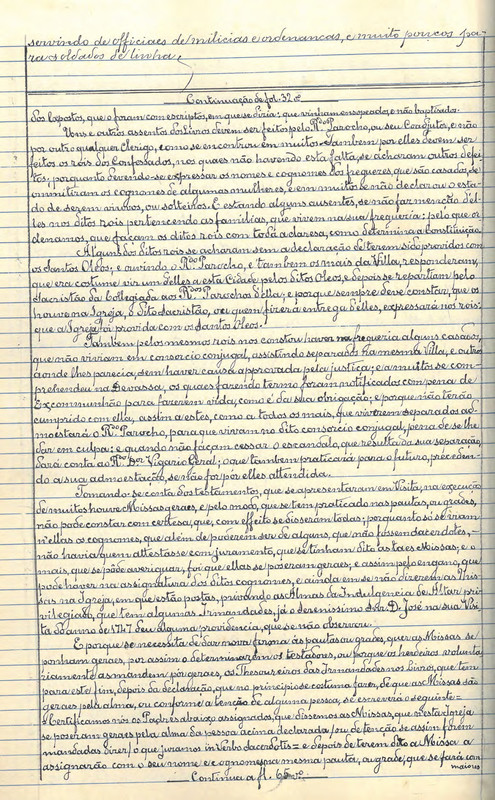 servindo de officiaes de milicias e ordenanças, e muito poucos pa-
ra soldados de linha.
Continuação de fol. 32 vº
dos Expostos, que o foram com escriptos, em que se diria: que vinham ensopeados, e não baptisados.
Uns e outros assentos dos Livros devem ser feitos pelo Rdo. Parocho, ou seu Coadjutor, e não
por outro qualquer Clerigo, como se encontrou em muitos. Tambem por elles devem ser
feitos os rois dos Confessados, nos quaes não havendo esta falta, se acharam outros defei-
tos; porquanto devendo-se expressar os nomes e cognomes dos freguezes, que são casados, se
ommittiram os cognomes de algumas mulheres, e em muitos se não declarou o esta-
do de serem viuvos, ou solteiros. E estando alguns ausentes, se não faz menção del-
les nos ditos rois pertencendo as familias, que vivem na sua freguezia; pelo que or-
denamos, que façam os ditos rois com toda a clareza, como determina a Constituição.
Alguns dos ditos rois se acharam sem a declaração de terem sido providos com
os Santos Oleos, e ouvindo o Rdo. Parocho, e tambem os mais da Villa, responderam,
que era costume vir um delles a esta Cidade pelos ditos Oleos, e depois se repartiam pelo
Sacristão da Collegiada aos Rdos. Parochos d'ella; e porque sempre deve constar, que os
houve na Igreja, o dito Sacristão, ou quem fizer a entrega d'elles, expressará nos rois:
que a Igreja foi provida com os Santos Oleos.
Tambem pelos mesmos rois nos constou haver na freguezia alguns casados,
que não viviam em consorcio conjugal, assistindo separados na mesma Villa, e outros
aonde lhes parecia, sem haver causa approvada pela justiça; e a muitos se com-
prehendeu na Devassa, os quaes fazendo termo foram notificados com pena de
Excommunhão para fazerem vida, como é da sua obrigação; e porque não terão
cumprido com ella, assim a estes, como a todos os mais, que viverem separados ad-
moestará o Rdo. Parocho, para que vivam no dito consorcio conjugal, pena de se lhe
dar em culpa; e quando não façam cessar o escandalo, que resulta da sua separação,
dará conta ao Rdo. Dor. Vigario Geral; o que tambem praticará para o futuro, preceden-
do a sua admoestação, se não for por elles attendida.
Tomando-se conta dos testamentos, que se apresentaram em Visita, na execução
de muitos houve Missas geraes, e pelo modo, que se tem praticado nas pautas, ou grades,
não pode constar com certesa, que, com effeito se disseram todas; porquanto só se viram
n'ellas os cognomes, que alem de poderem ser de alguns, que não fossem sacerdotes,
não havia quem attestasse com juramento, que se tinham dito as taes Missas; e o
mais, que se pode averiguar, foi que ellas se poseram geraes; e assim pelo engano, que
pode haver na assignatura dos ditos cognomes, e ainda em se não dizerem as Mis-
sas na Igreja, em que estão postas, privando as Almas da Indulgencia de Altar pri-
vilegiado, que tem algumas Irmandades, já o Serenissimo Snr. D. José na sua Visi-
ta do anno de 1747 deu alguma providencia, que se não observou.
E porque se necessita de dar nova forma ás pautas ou grade, quer as Missas se
ponham geraes, por assim o determinarem os testadores, ou porque os herdeiros volunta-
riamente as mandem pôr geraes, os Thesoureiros das Irmandades nos livros, que tem
para este fim, depois da declaração, que no principio se costuma fazer, de que as Missas são
geraes pela alma, ou conforme a tenção de alguma pessoa, se escreverá o seguinte =
= Certificamos nós os Padres abaixo assignados, que dissemos as Missas, que n'esta Igreja
se poseram geraes pela alma da pessoa acima declarada/ ou da tenção se assim forem
mandadas dizer/ o que juramos in Verbo sacerdotis = e depois de terem dito a Missa a
assignarão com o seu nome e cognomes na mesma pauta, ou grade, que se fará com
maiores
Continua a fl. 65 vº